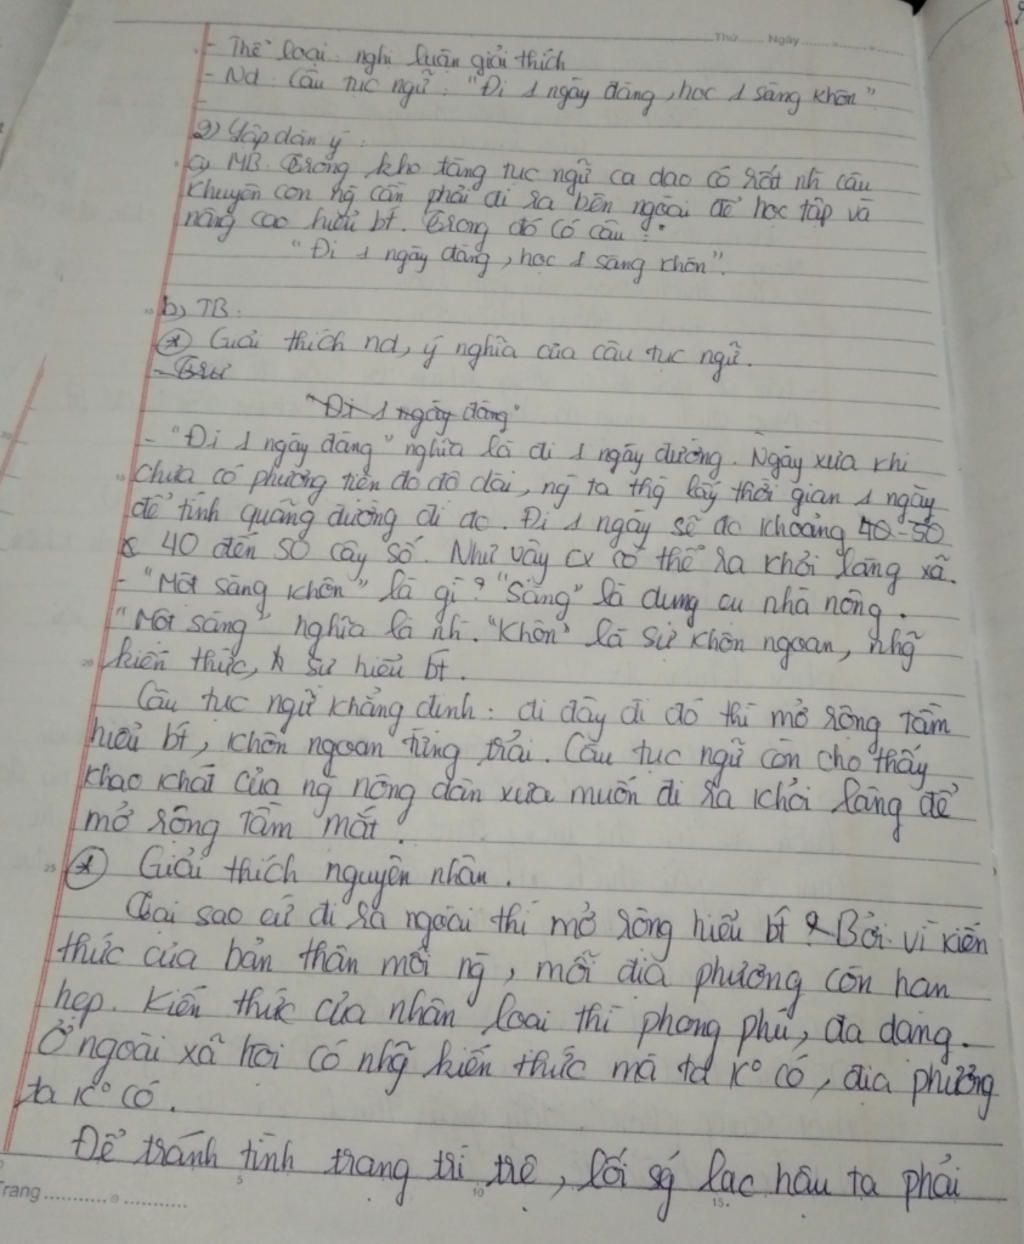 Thứ ...... Ngày ............
- Thể loại: nghị luận giải thích
- Nd: Câu tục ngữ: "Đi 1 ngày đàng, học 1 sàng khôn"
2) Lập dàn ý:
a) MB: Trong kho tàng tục ngữ ca dao có rất nh câu
khuyên con ng cần phải đi ra bên ngoài để học tập và
nâng cao hiểu bt. Trong đó có câu:
"Đi 1 ngày đàng, học 1 sàng khôn".
b) TB:
* Giải thích nd, ý nghĩa của câu tục ngữ.
"Đi 1 ngày đàng"
- "Đi 1 ngày đàng" nghĩa là đi 1 ngày đường. Ngày xưa khi
chưa có phương tiện đo độ dài, ng ta thg lấy thời gian 1 ngày
để tính quãng đường đi đc. Đi 1 ngày sẽ đc khoảng 40-50
40 đến 50 cây số. Như vậy cx có thể ra khỏi làng xã.
- "Một sàng khôn" là gì? "Sàng" là dụng cụ nhà nông.
"Một sàng" nghĩa là nh. "Khôn" là sự khôn ngoan, nhg
kiến thức, sự hiểu bt.
Câu tục ngữ khẳng định: đi đây đi đó thì mở rộng tầm
hiểu bt, khôn ngoan từng trải. Câu tục ngữ còn cho thấy
khao khát của ng nông dân xưa muốn đi ra khỏi làng để
mở rộng tầm mắt.
* Giải thích nguyên nhân.
Tại sao cứ đi ra ngoài thì mở rộng hiểu bt? Bởi vì kiến
thức của bản thân mỗi ng, mỗi địa phương còn hạn
hẹp. Kiến thức của nhân loại thì phong phú, đa dạng.
Ở ngoài xã hội có nhg kiến thức mà ta k° có, địa phương
ta k° có.
Để tránh tình trạng trì trệ, lối sg lạc hậu ta phải
Trang ......................